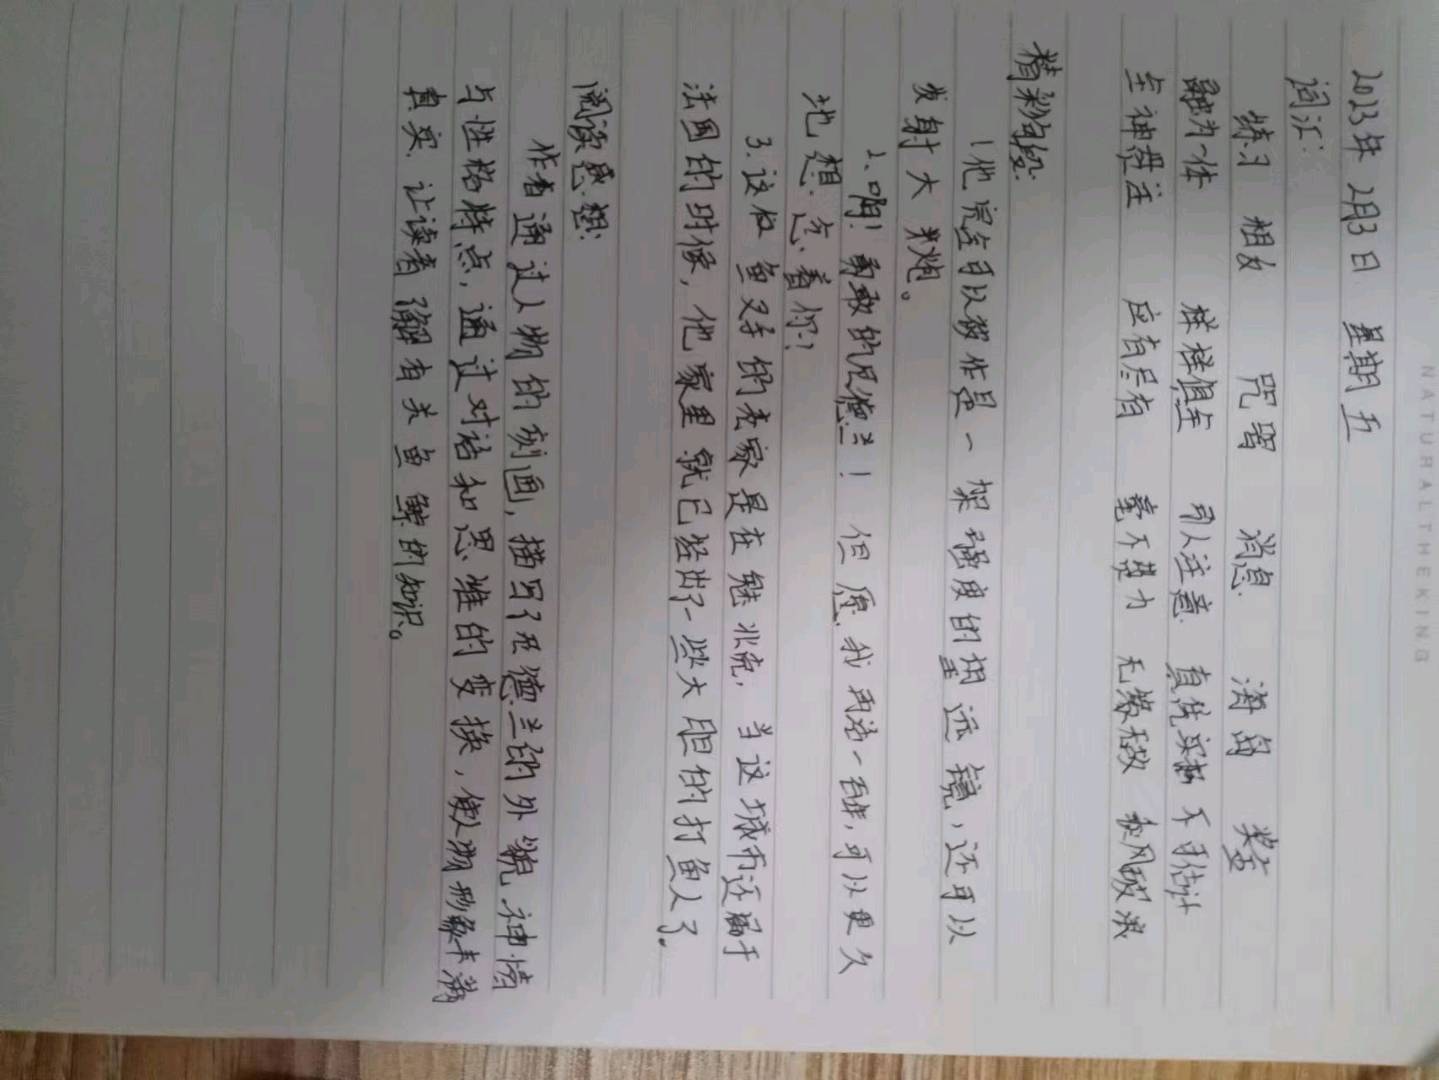 NATURALTHEKING
2023年 2月3日 星期五
词汇:
练习 粗 咒骂 消息 海岛
融为一体 样样俱全 引人注意 真凭实据 不可估计
全神贯注 应有尽有 毫不费力 无声无 乘风破浪
精彩句段:
1他完全可以称作是一架强度的望远镜,还可以
发射大炮。
2、啊!勇敢的尼德兰!但愿我再活一百年,可以更久
地想念着你!
3.这位鱼叉手的老家是在魁北克,当这城市还属于
法国的时候,他家里就已经出了一些大胆的打鱼人了。
阅读感想:
作者通过人物的刻画,描写了尼德兰的外貌神情
与性格特点,通过对话和思维的变换,使人物形象丰满
真实,让读者了解有关鱼鲜的知识。